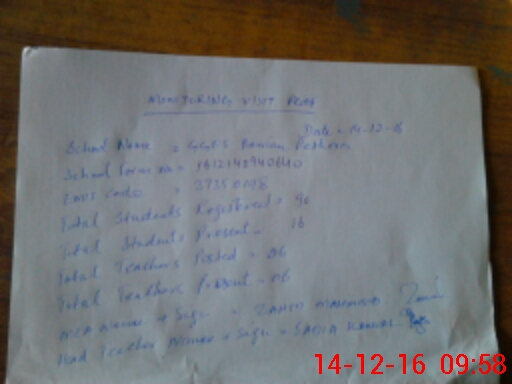 MONITORING VISIT PROOF
Date = 14-12-16
School Name = GGES Pothora
School Form No = 
EMIS Code = 37350048
Total Students Registered = 90
Total Students Present = 26
Total Teachers Posted = 06
Total Teachers Present = 06
MEA Name + Sign = ZAHID MAHMOOD
Head Teacher Name + Sign = SADIA KANWAL
14-12-16 09:58